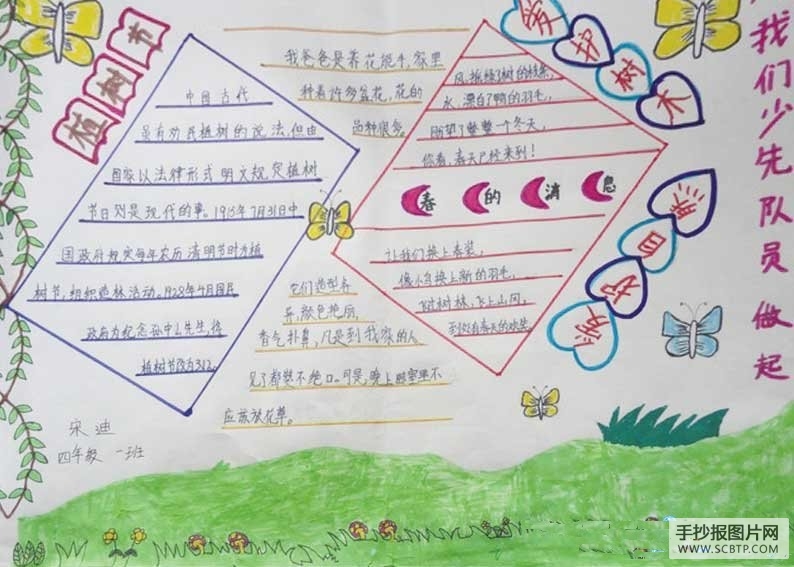 植树节
中国古代
虽有劝民植树的说法,但由
国家以法律形式明文规定植树
节日则是现代的事。1915年7月31日中
国政府规定每年农历清明节时为植
树节,组织造林活动,1928年4月国民
政府为纪念孙中山先生,将
植树节改为312。
我爸爸是养花能手,家里
种着许多盆花,花的
品种很多。
它们造型各
异,颜色艳丽,
香气扑鼻,凡是到我家的人
见了都赞不绝口。可是,晚上卧室里不
应该放花草。
风,摇绿了树的枝条,
水,漂白了鸭的羽毛,
盼望了整整一个冬天,
你看,春天已经来到!
春的消息
让我们换上春装,
像小鸟换上新的羽毛,
飞过树林,飞上山冈,
到处有春天的欢笑。
爱护树木
爱护自然
从我们少先队员做起
宋迪
四年级 一班
手抄报图片网
WWW.SCBTP.COM